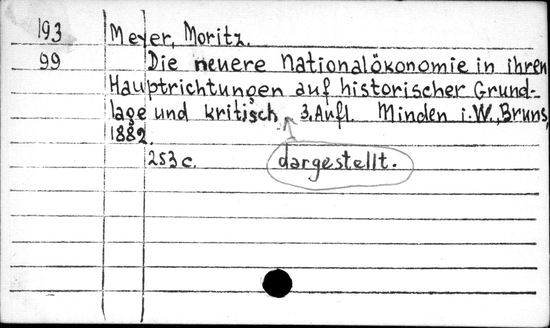 193 Meyer, Moritz.
99 Die neuere Nationalökonomie in ihren
Hauptrichtungen auf historischer Grund-
lage und kritisch 3. Aufl. Minden i. W., Bruns,
1882.
253 c. dargestellt.